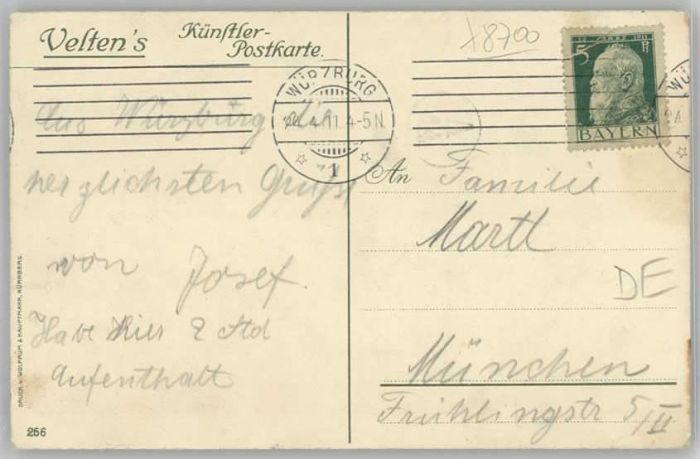 Velten's Künstler-
Postkarte.
x8700
12 MÄRZ 1911
5 Pf
BAYERN
WÜRZBURG
24.4.11.4-5N
1
Aus Würzburg die
herzlichsten Grüße
von Josef.
Habe hier 2 Std
Aufenthalt
An Familie
Martl
DE
München
Frühlingstr 5/II
DRUCK v. WOLFRUM & HAUPTMANN, NÜRNBERG.
256